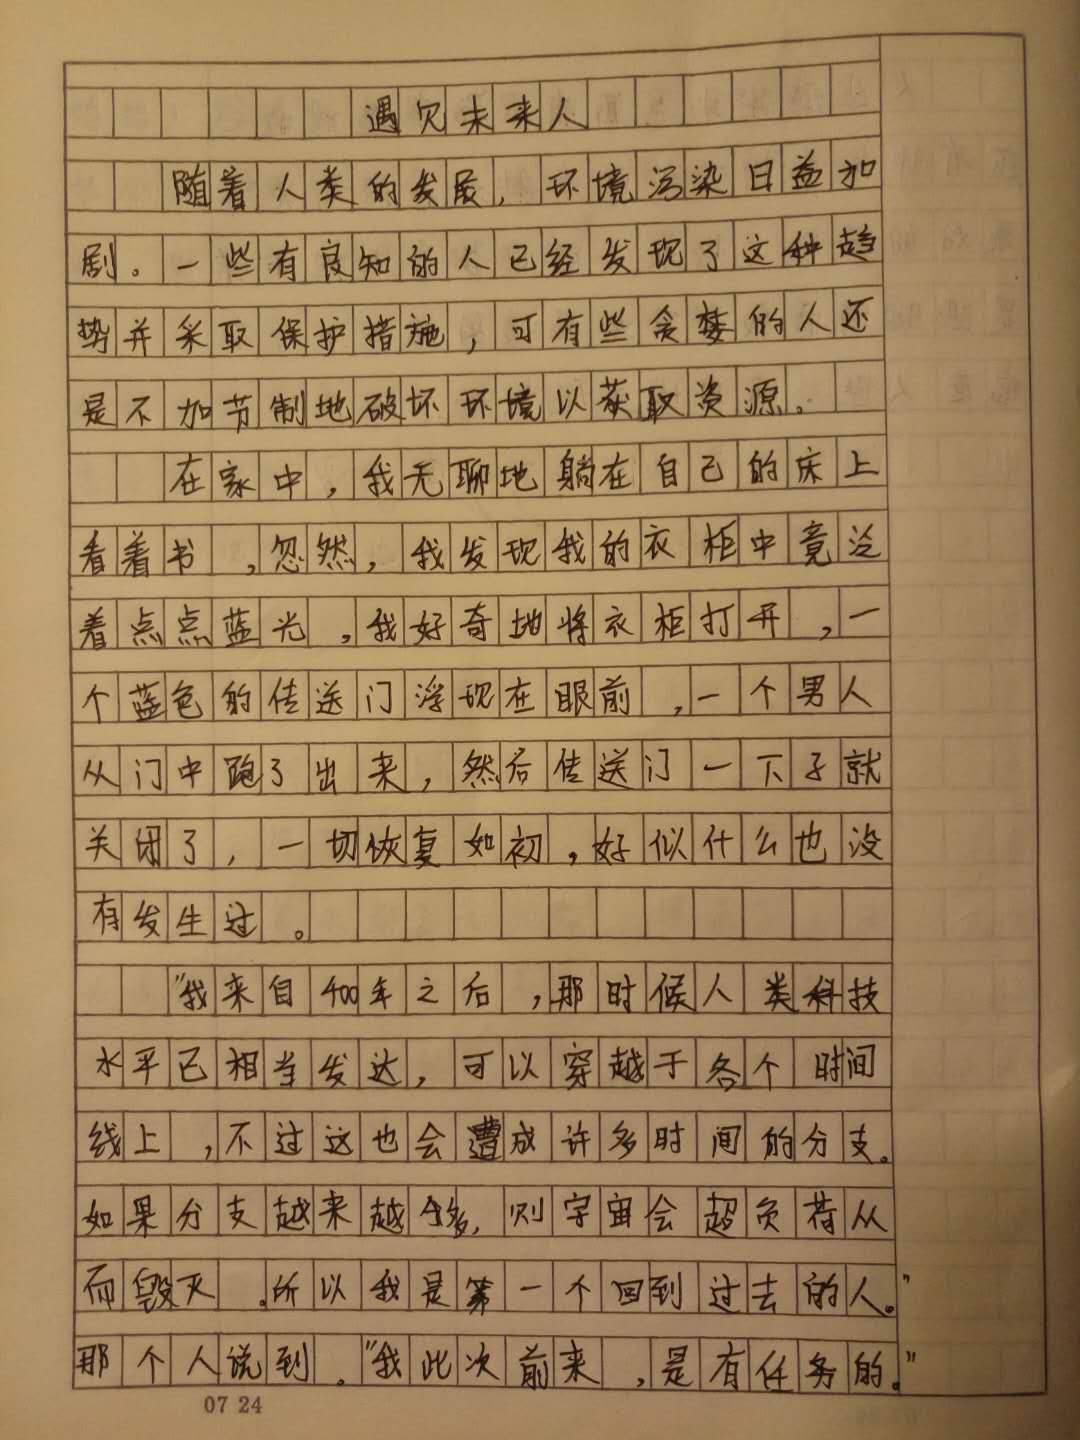 遇见未来人
随着人类的发展，环境污染日益加
剧。一些有良知的人已经发现了这种趋
势并采取保护措施，可有些贪婪的人还
是不加节制地破坏环境以获取资源。
在家中，我无聊地躺在自己的床上
看着书，忽然，我发现我的衣柜中竟泛
着点点蓝光，我好奇地将衣柜打开，一
个蓝色的传送门浮现在眼前，一个男人
从门中跑了出来，然后传送门一下子就
关闭了，一切恢复如初，好似什么也没
有发生过。
"我来自400年之后，那时候人类科技
水平已相当发达，可以穿越于各个时间
线上，不过这也会遭成许多时间的分支。
如果分支越来越多，则宇宙会超负荷从
而毁灭。所以我是第一个回到过去的人。"
那个人说到。"我此次前来，是有任务的。"
07 24